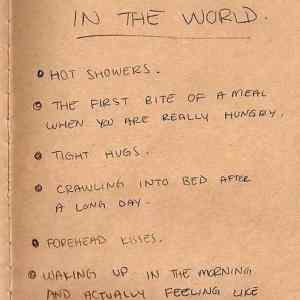 IN THE WORLD.
HOT SHOWERS.
THE FIRST BITE OF A MEAL
WHEN YOU ARE REALLY HUNGRY.
TIGHT HUGS.
CRAWLING INTO BED AFTER
A LONG DAY.
FOREHEAD KISSES.
WAKING UP IN THE MORNING
AND ACTUALLY FEELING LIKE